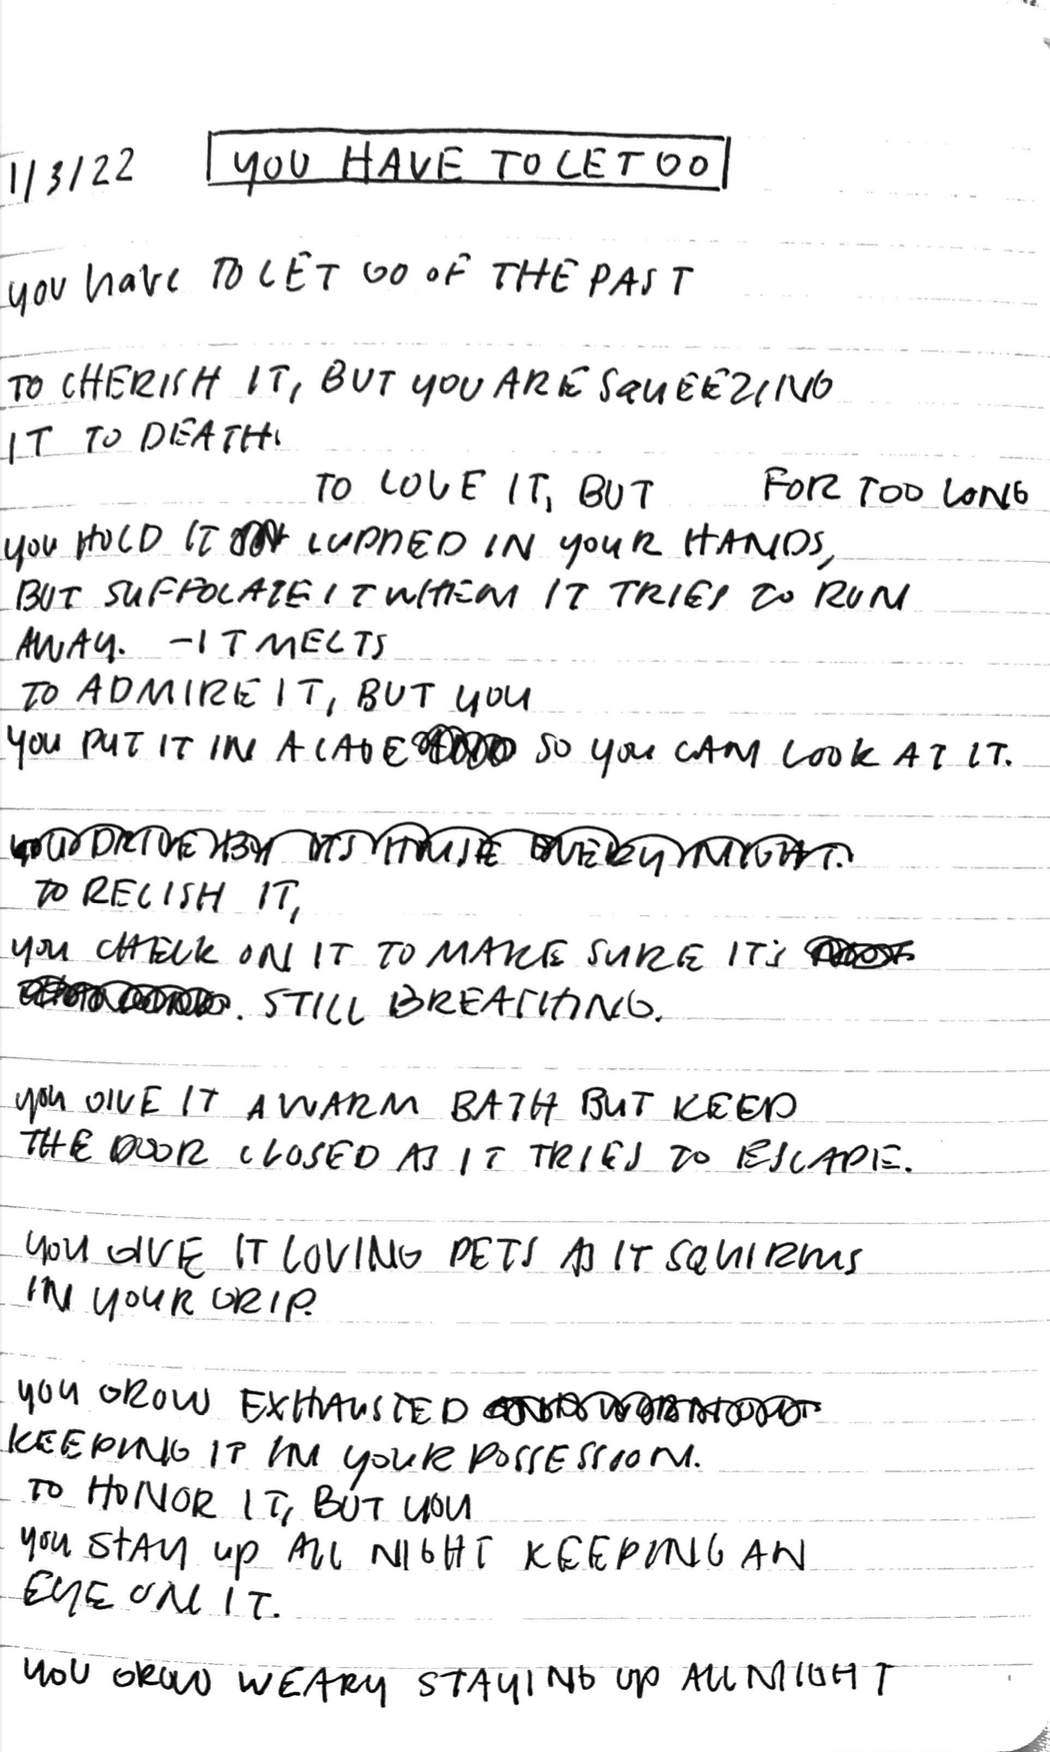 1/3/22 YOU HAVE TO LET GO
you have TO LET GO OF THE PAST
TO CHERISH IT, BUT YOU ARE SQUEEZING
IT TO DEATH.
TO LOVE IT, BUT FOR TOO LONG
YOU HOLD IT CUPPED IN YOUR HANDS,
BUT SUFFOCATE IT WHEN IT TRIES TO RUN
AWAY. - IT MELTS
TO ADMIRE IT, BUT YOU
YOU PUT IT IN A CAGE SO YOU CAN LOOK AT IT.
YOU DRIVE BY ITS HOUSE EVERY NIGHT.
TO RELISH IT,
YOU CHECK ON IT TO MAKE SURE IT'S
. STILL BREATHING.
YOU GIVE IT A WARM BATH BUT KEEP
THE DOOR CLOSED AS IT TRIES TO ESCAPE.
YOU GIVE IT LOVING PETS AS IT SQUIRMS
IN YOUR GRIP.
YOU GROW EXHAUSTED
KEEPING IT IN YOUR POSSESSION.
TO HONOR IT, BUT YOU
YOU STAY UP ALL NIGHT KEEPING AN
EYE ON IT.
YOU GROW WEARY STAYING UP ALL NIGHT